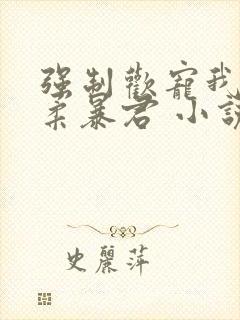 强制歡寵我
柔暴君 小說
史麗萍